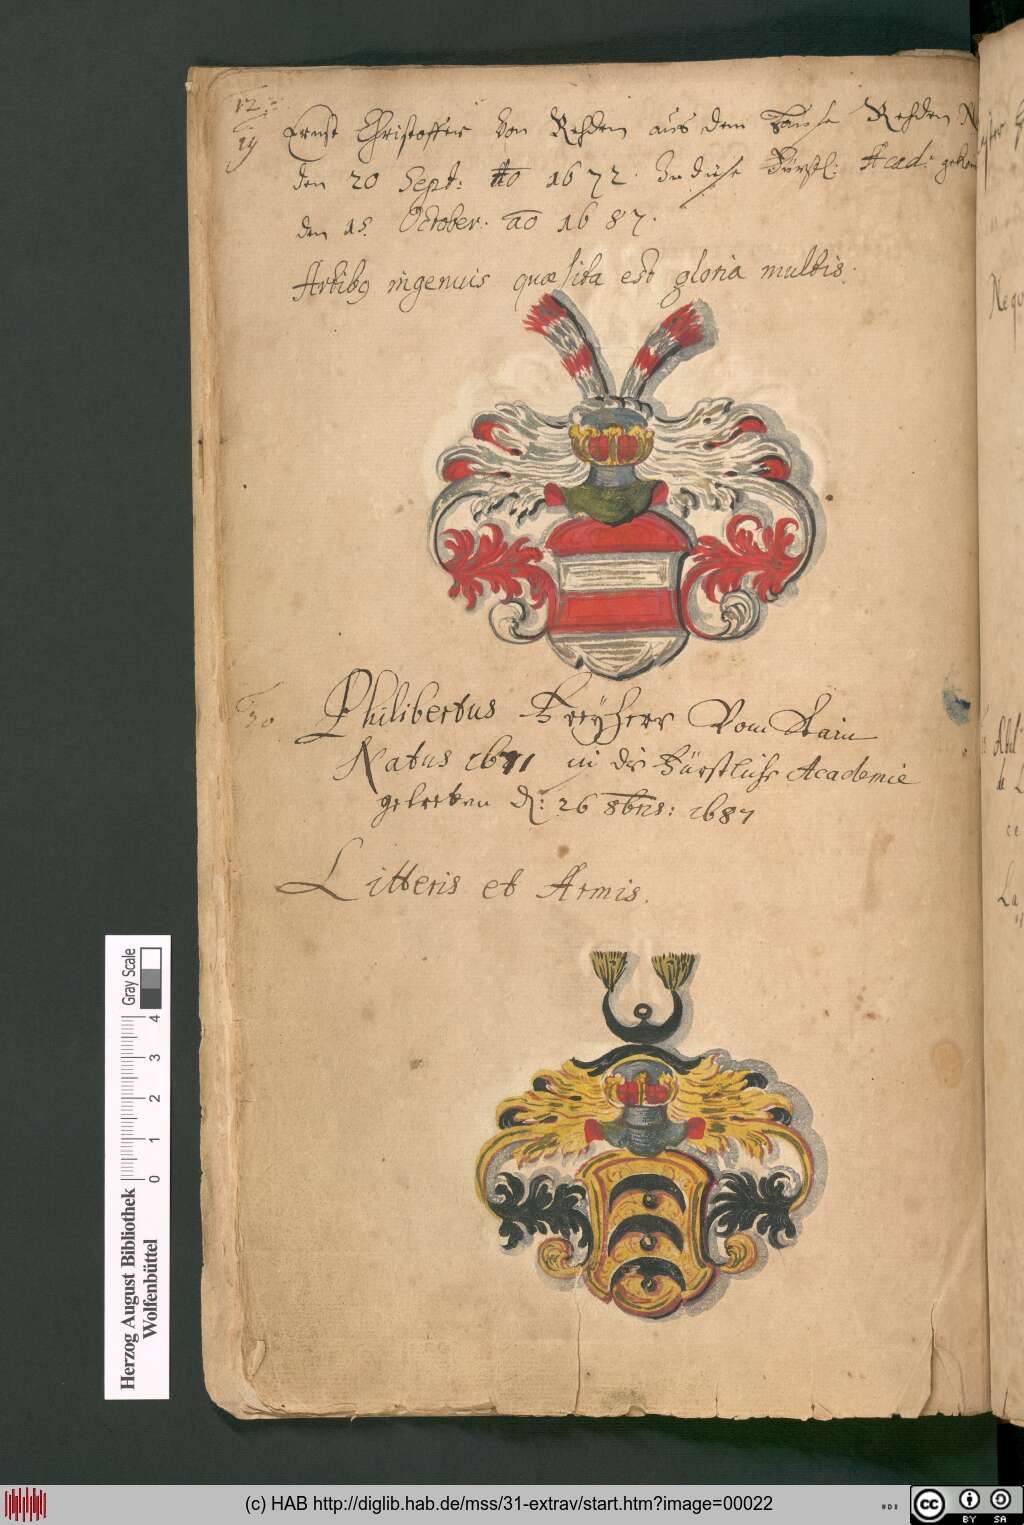 12.
19
Ernst Christoffer von Rehden aus dem Hause Rehden
den 20 Sept: Ao 1672. In diese Fürstl: Acad:
den 15. October. ao 1687.
Artibꝯ ingenuis quæsita est gloria multis.
20
Philibertus Freyherr Vom Stain
Natus 1671 in die Fürstliche Academie
getretten d: 26 8bris: 1687
Litteris et Armis.
Herzog August Bibliothek
Wolfenbüttel
0 1 2 3 4
Gray Scale
(c) HAB http://diglib.hab.de/mss/31-extrav/start.htm?image=00022
WDB
cc BY SA